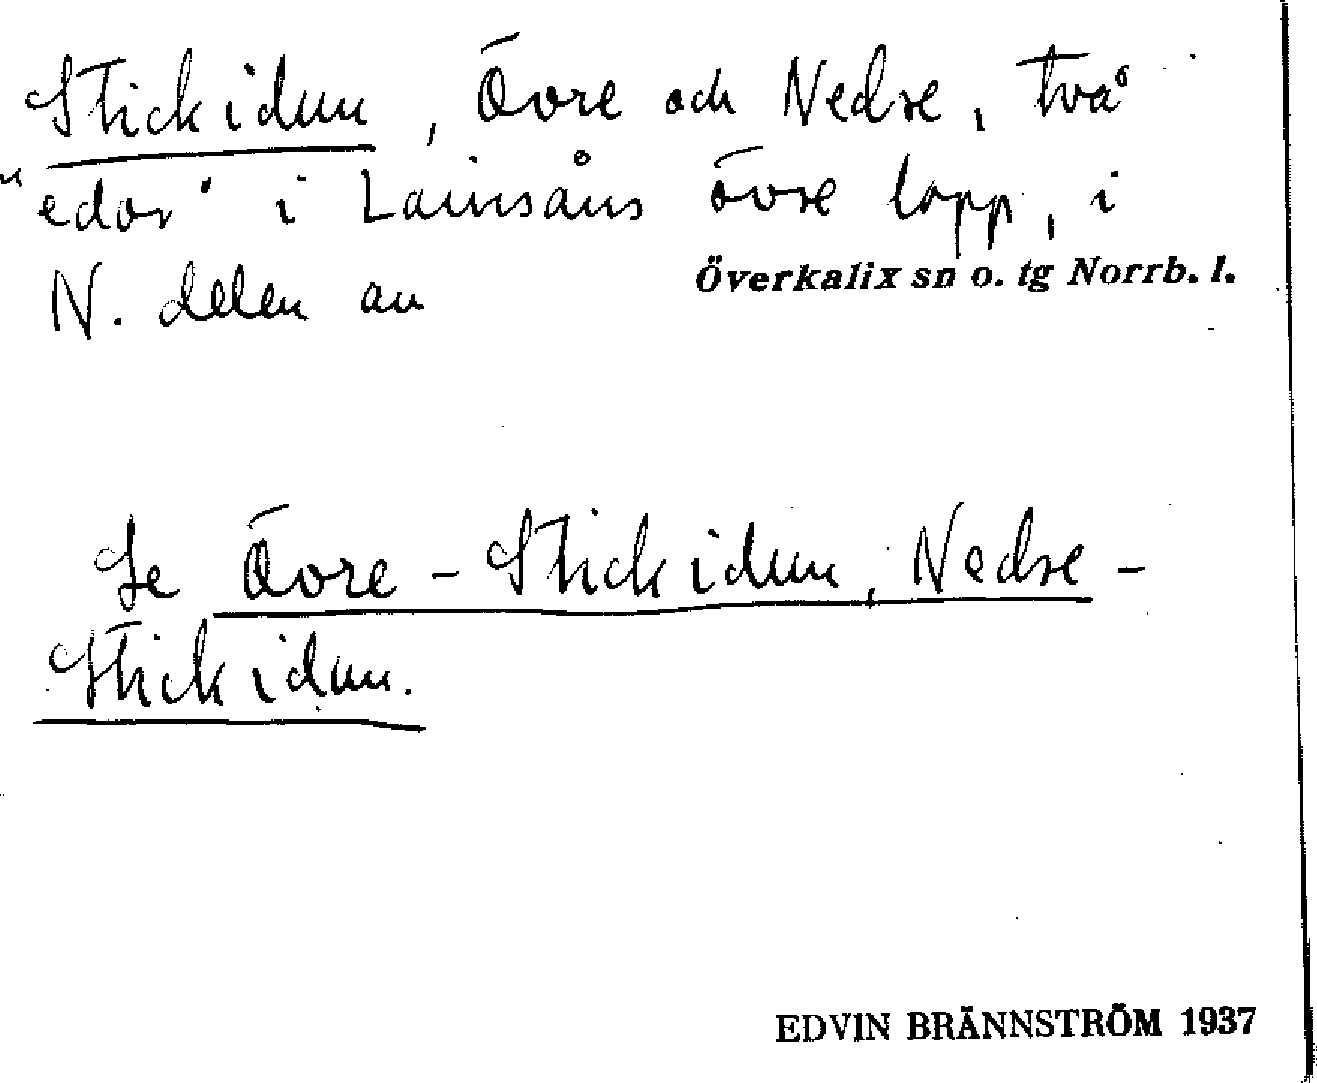 Stickidun, Övre och Nedre, två
"edor" i Lainisåns övre lopp, i
N. delen av Överkalix sn o. tg Norrb. l.
Se Övre-Stickidun, Nedre-
Stickidun.
EDVIN BRÄNNSTRÖM 1937